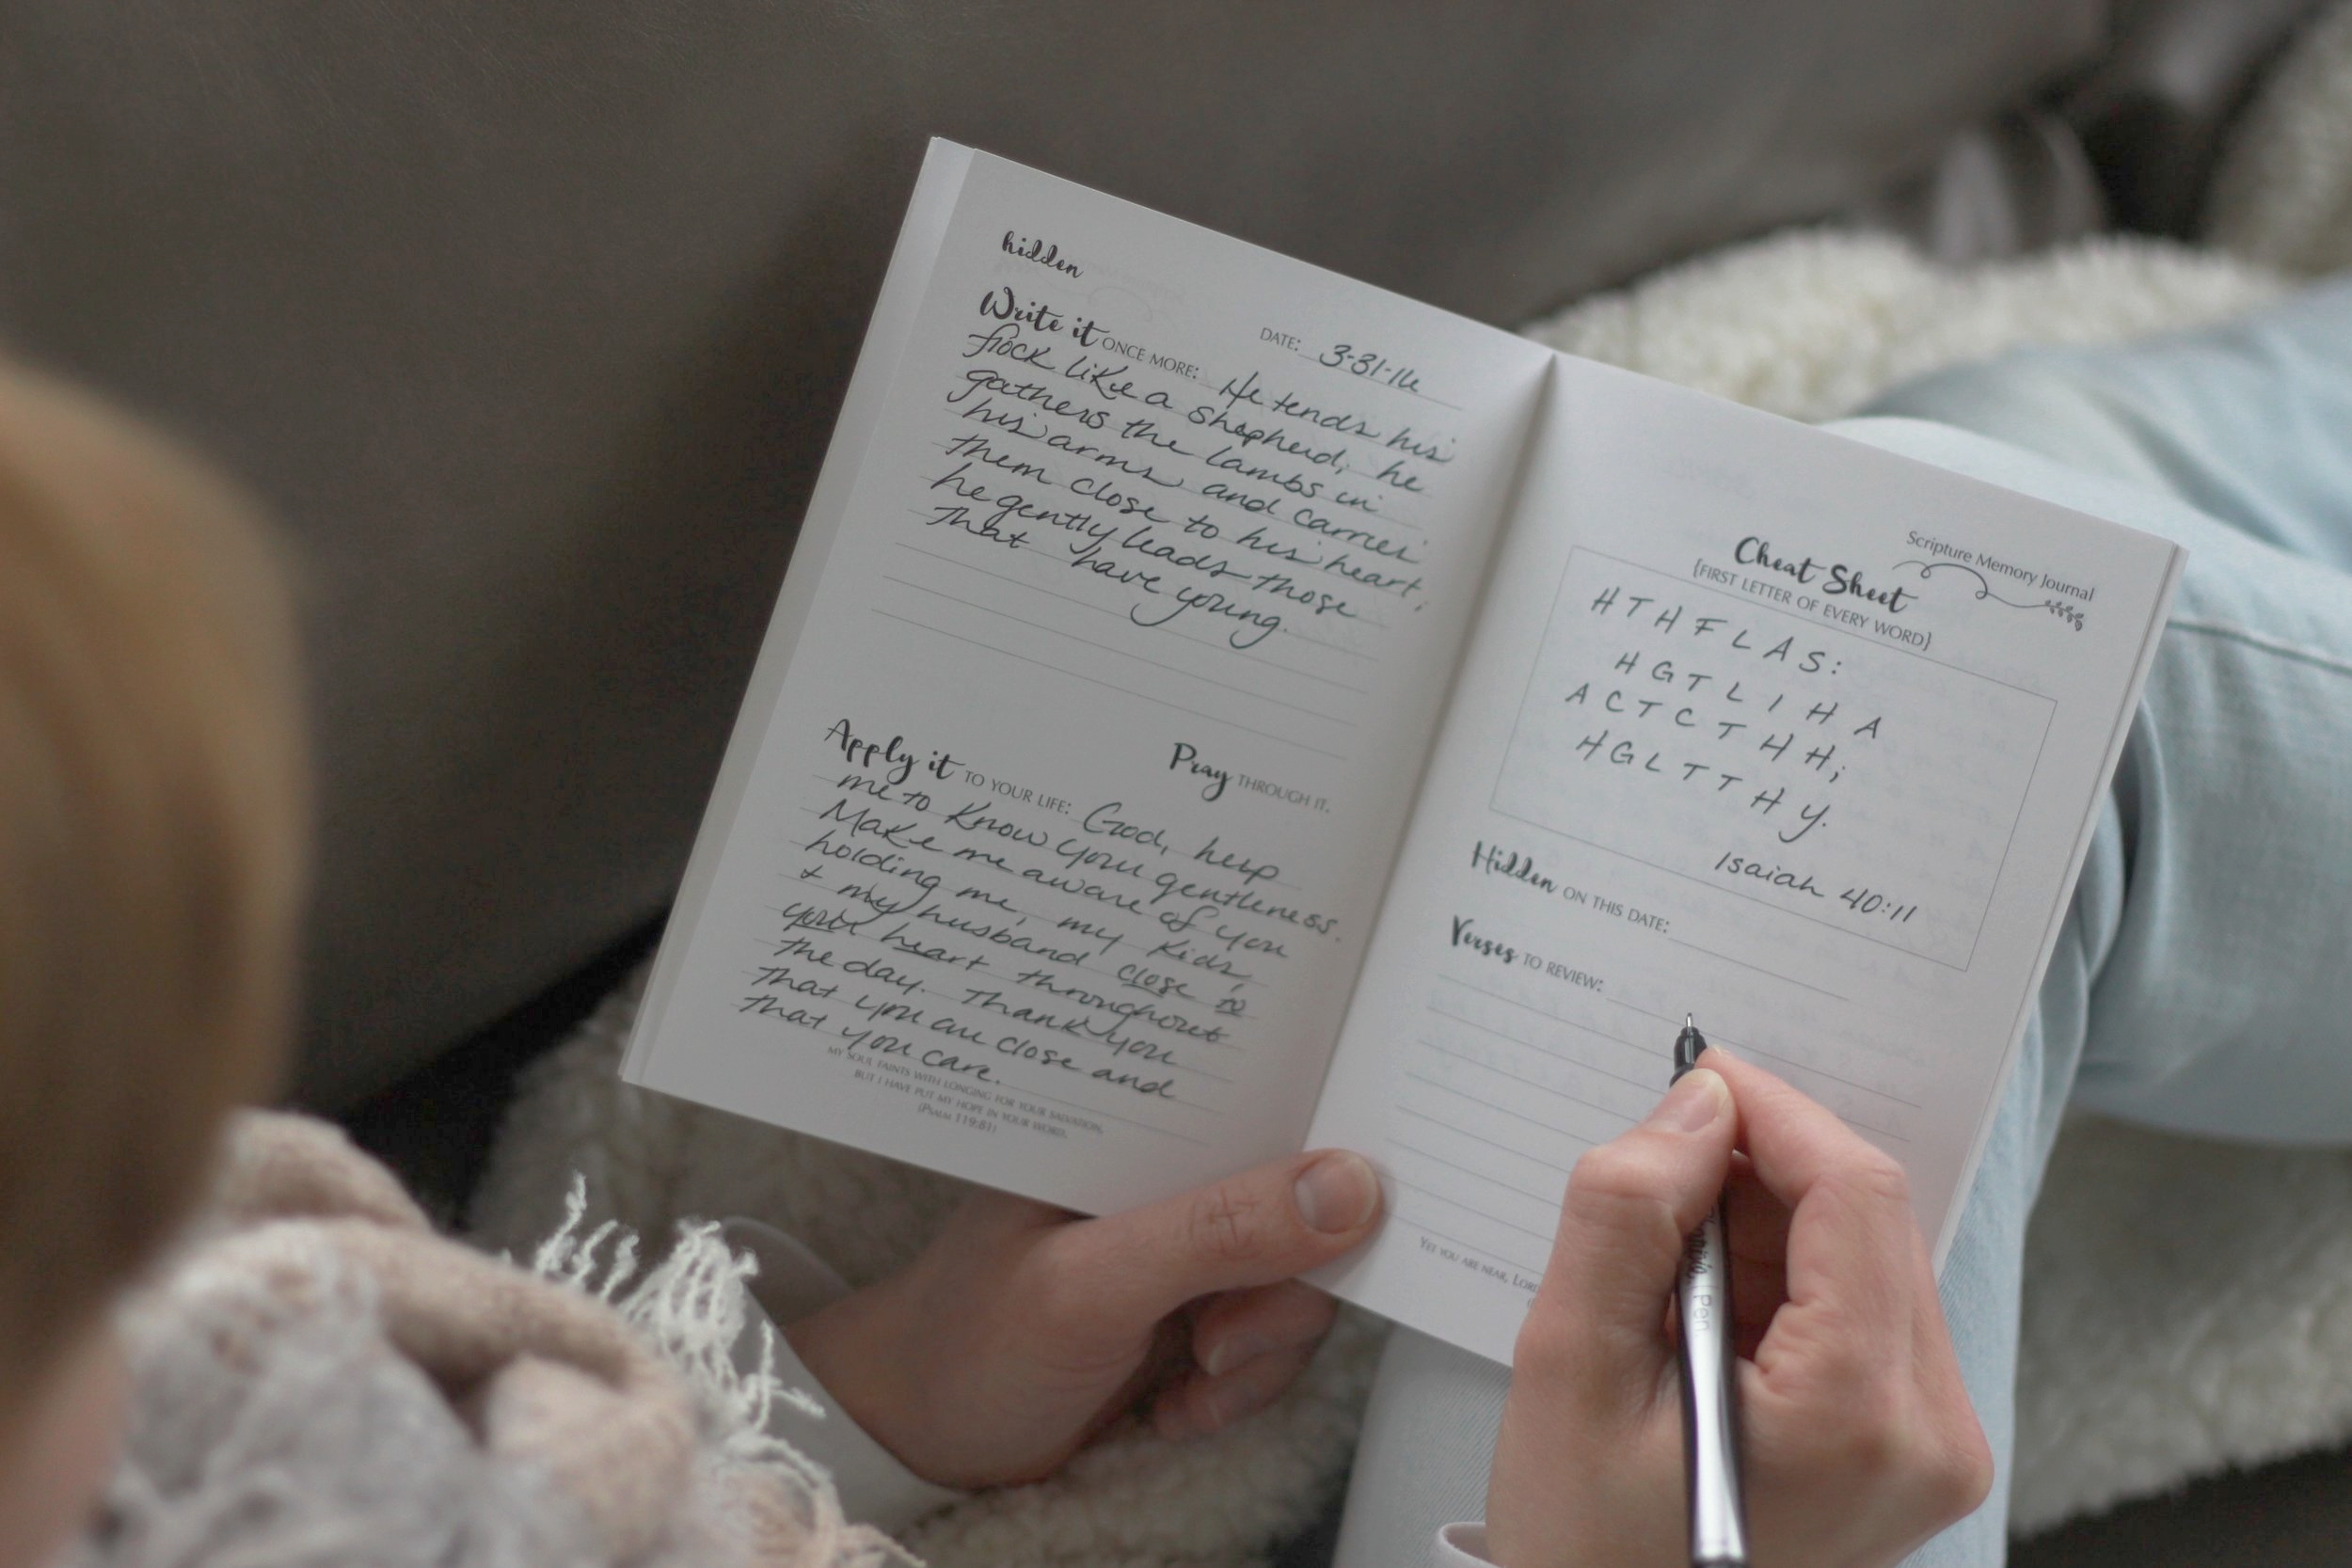 hidden
DATE: 3-31-16
Write it ONCE MORE: He tends his
flock like a shepherd; he
gathers the lambs in
his arms and carries
them close to his heart;
he gently leads those
that have young.
Pray THROUGH IT.
Apply it TO YOUR LIFE: God, help
me to know your gentleness.
Make me aware of you
holding me, my kids,
+ my husband close to
your heart throughout
the day. Thank you
that you are close and
that you care.
MY SOUL FAINTS WITH LONGING FOR YOUR SALVATION,
BUT I HAVE PUT MY HOPE IN YOUR WORD.
(PSALM 119:81)
Scripture Memory Journal
Cheat Sheet
{FIRST LETTER OF EVERY WORD}
H T H F L A S:
H G T L I H A
A C T C T H H;
H G L T T H Y.
Isaiah 40:11
Hidden ON THIS DATE:
Verses TO REVIEW:
YET YOU ARE NEAR, LORD
Pen